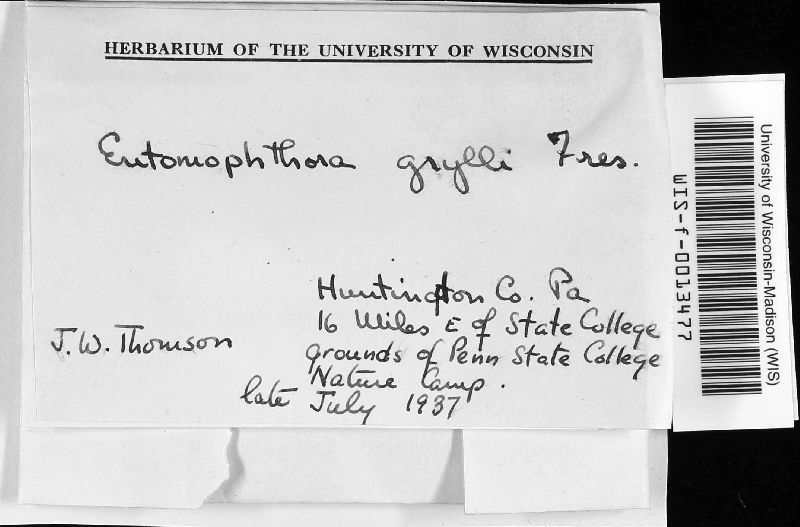 HERBARIUM OF THE UNIVERSITY OF WISCONSIN
Entomophthora grylli Fres.
Huntington Co. Pa
16 Miles E of State College
J.W. Thomson
grounds of Penn State College
Nature Camp.
late July 1937
University of Wisconsin-Madison (WIS)
WIS-f-0013477